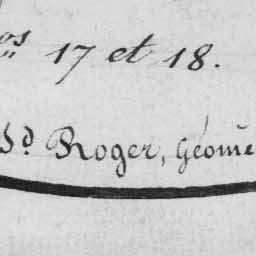 os 17 et 18.
Sd Roger, Géome